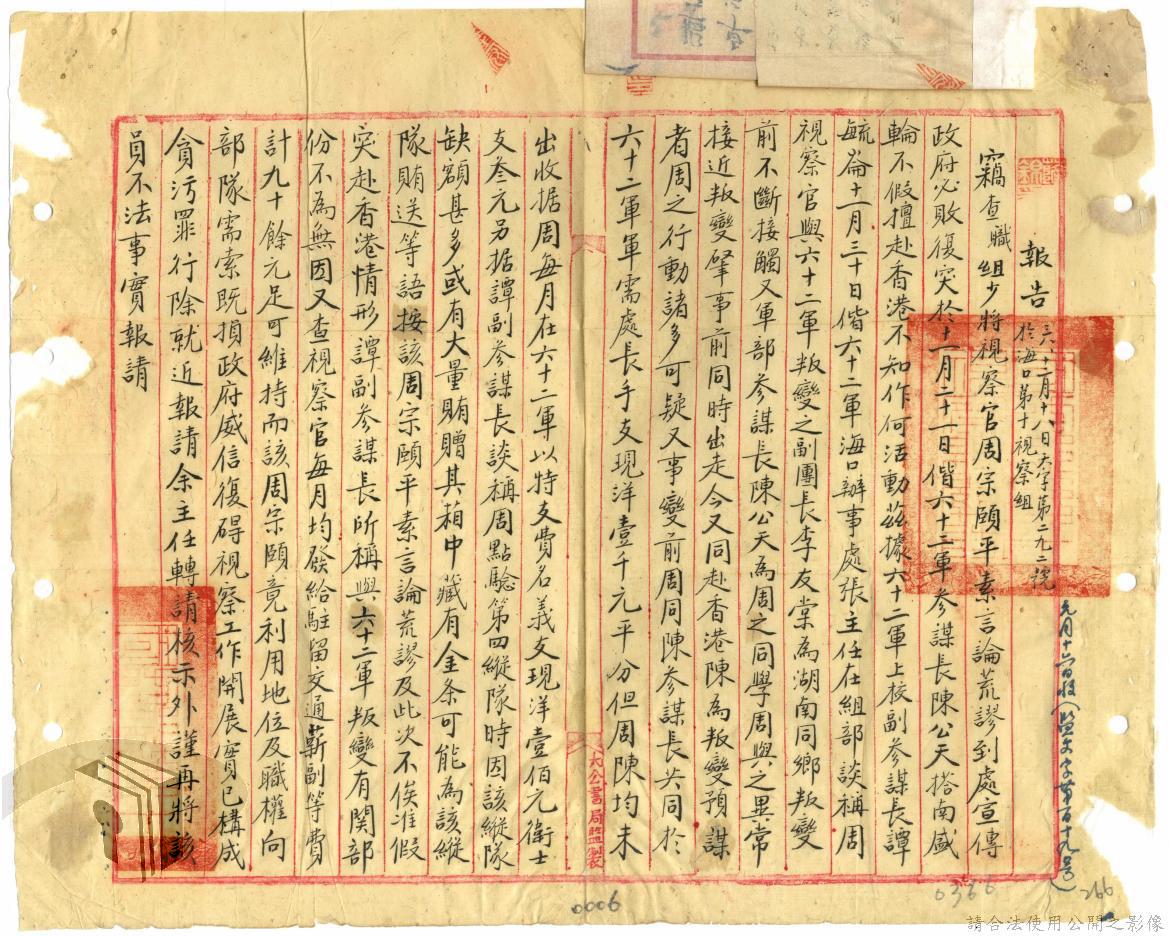 報告
於海口第十視察組
竊查職組少將視察官周宗頤平素言論荒謬到處宣傳
政府必敗復突於十一月二十一日偕六十二軍參謀長陳公天搭南盛
輪不假擅赴香港不知作何活動茲據六十二軍上校副參謀長譚
毓崙十一月三十日偕六十二軍海口辦事處張主任在組部談稱周
視察官與六十二軍叛變之副團長李友棠為湖南同鄉叛變
前不斷接觸又軍部參謀長陳公天為周之同學周與之異常
接近叛變肇事前同時出走今又同赴香港陳為叛變預謀
者周之行動諸多可疑又事變前周同陳參謀長共同於
六十二軍軍需處長手支現洋壹千元平分但周陳均未
出收据周每月在六十二軍以特支費名義支現洋壹佰元衛士
支叁元另据譚副參謀長談稱周點驗第四縱隊時因該縱隊
缺額甚多或有大量賄贈其箱中藏有金条可能為該縱
隊賄送等語按該周宗頤平素言論荒謬及此次不俟准假
突赴香港情形譚副參謀長所稱與六十二軍叛變有関部
份不為無因又查視察官每月均發給駐留交通薪副等費
計九十餘元足可維持而該周宗頤竟利用地位及職權向
部隊需索既損政府威信復碍視察工作開展實已構成
貪污罪行除就近報請余主任轉請核示外謹再將該
員不法事實報請
大公書局監製
0006
0366
266
請合法使用公開之影像